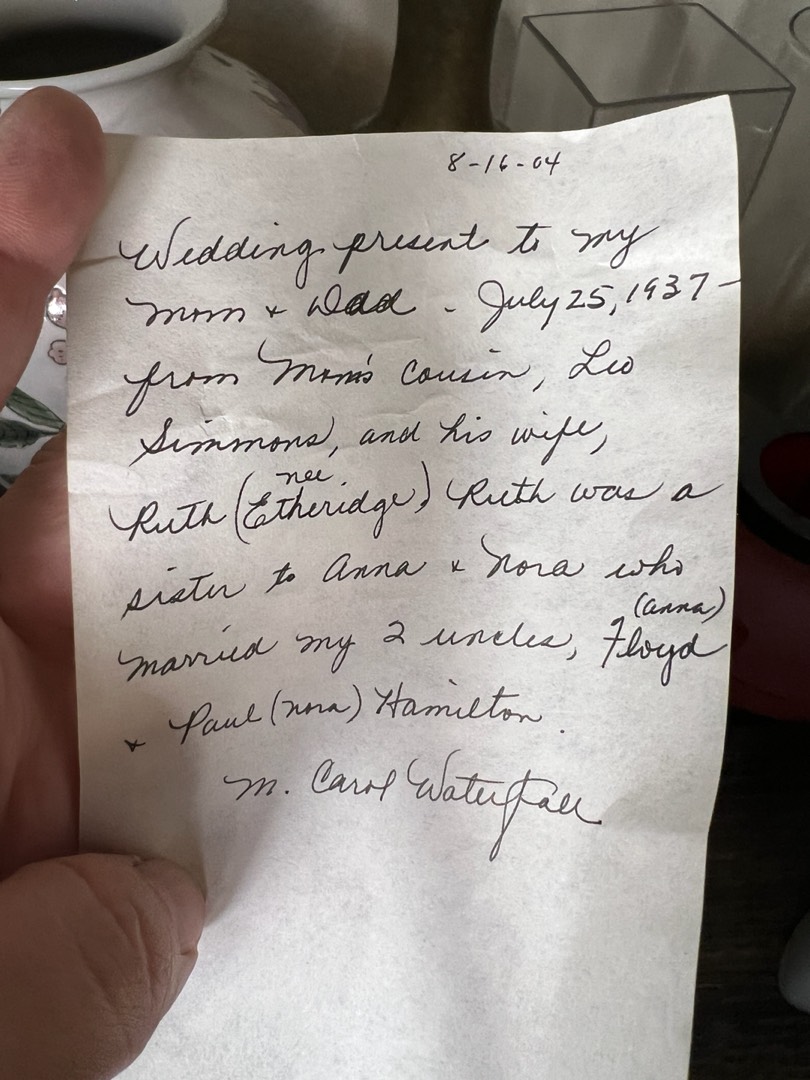 8-16-04
Wedding present to my
Mom + Dad - July 25, 1937 -
from Mom's cousin, Leo
Simmons, and his wife,
nee
Ruth (Etheridge). Ruth was a
sister to Anna + Nora who
(Anna)
married my 2 uncles, Floyd
+ Paul (Nora) Hamilton.
M. Carol Waterfall